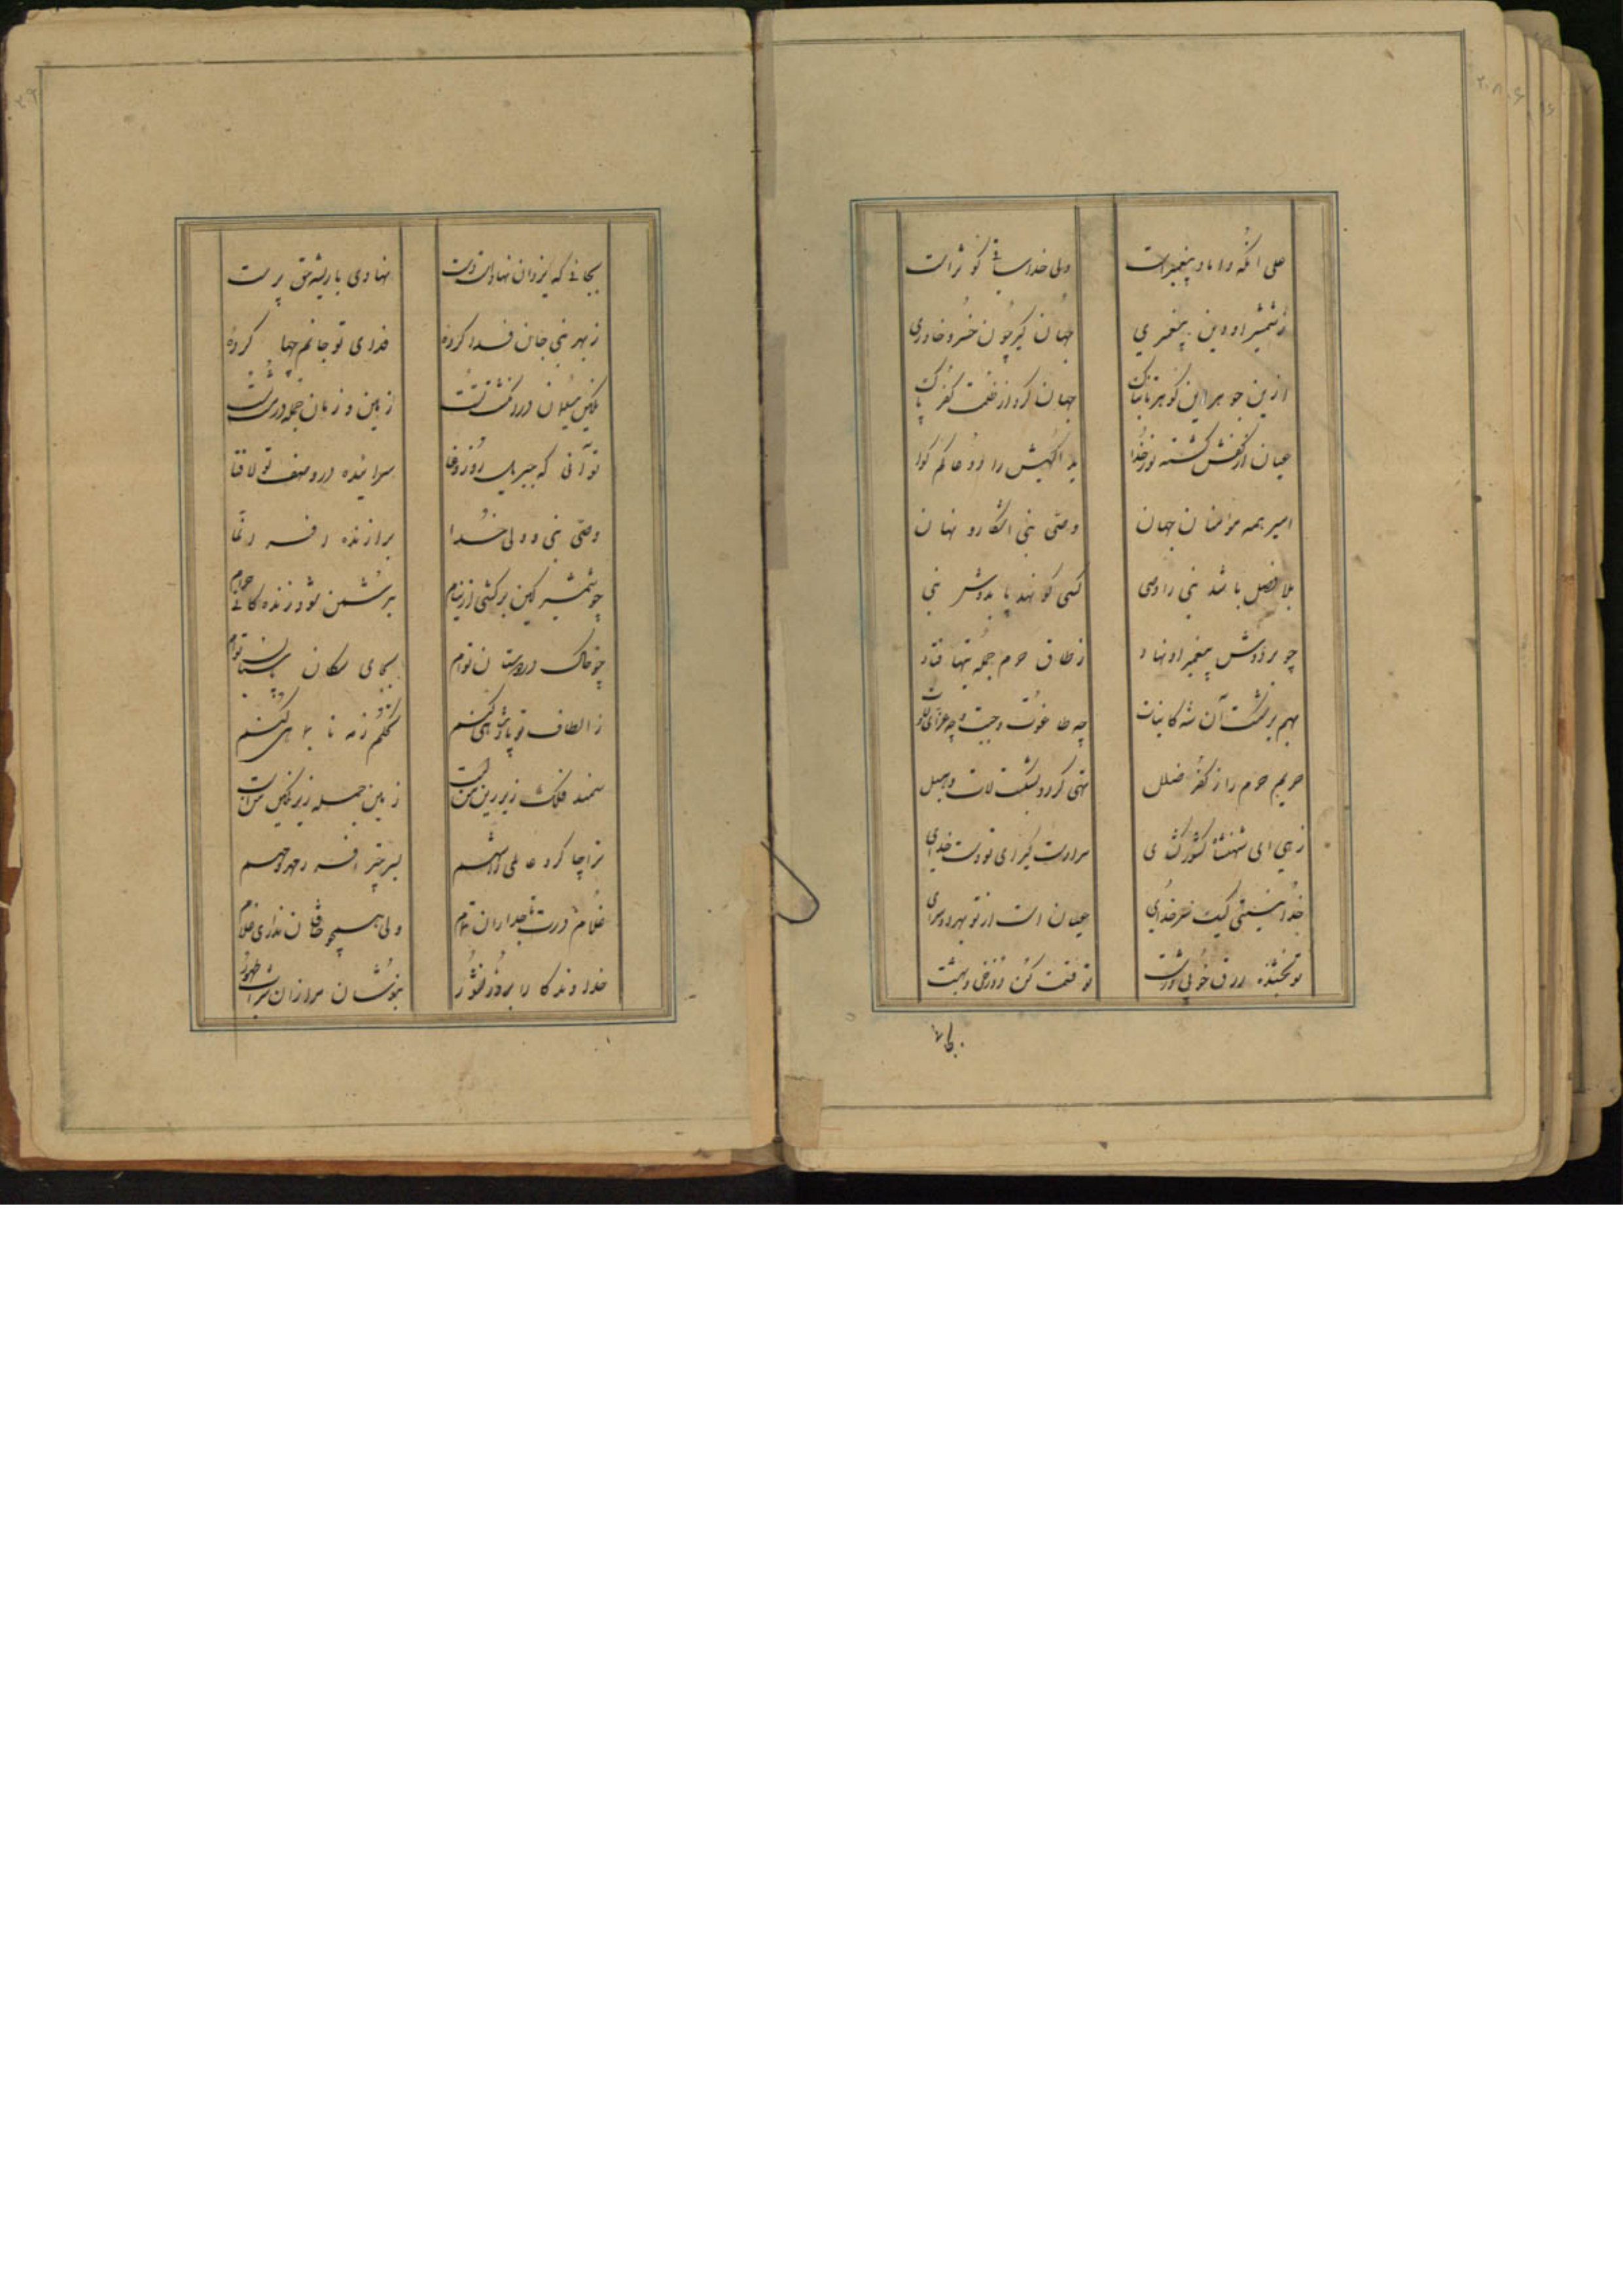 علی آنکه داماد پیغمبر است ولی خدا ساقی کوثر است
ز شمشیر او دین پیغمبری جهان گیر چون خسرو خاوری
ازین جوهر این گوهر تابناک جهان کرد از ظلمت کفر پاک
عیان از کفش گشته نور خدا ید اللهیش را دو عالم گوا
امیر همه مؤمنان جهان وصی نبی آشکار و نهان
بلا فصل باشد نبی را وصی کسی کو نهد پا بدوش نبی
چو بر دوش پیغمبر او نهاد ز طاق حرم جمله بتها فتاد
بهم بر شکست آن شه کاینات چه طاغوت و جبت و چه عزای و لات
حریم حرم را ز کفر ضلل تهی کرد و بشکست لات و هبل
زهی ای شهنشاه کشور گشای سزاوار
خدا نیستی لیک غیر خدای عیان است از تو بهر دو سرای
تو بخشنده رزق خوبی و زشت تو قسمت کن دوزخ و بهشت
بجائی
بجائی که یزدان نهاد است دست نهادی پا ای شه حق پرست
ز بهر نبی جان فدا کرده فدای تو جانم چها کرده
نگین سلیمان در انگشت تست زمین و زمان جمله در مشت تست
تو آنی که جبریل روز وغا سراینده در وصف تو لا فتا
وصی نبی و ولی خدا برازنده افسر انما
چو شمشیر کین برکشی از نیام بدشمن شود زندگانی حرام
چو خاک در دوستان توام بجای سگان پاسبان توام
ز الطاف تو پادشاهی کنم تکلم ز مه تا بماهی کنم
سمند فلک زیر زین من است زمین جمله زیر نگین من است
ترا چاکرم
غلام درت تاجداران تمام ولی همچو خاقان نداری غلام
خداوندگارا بروز نشور بنوشان مرا زان شراب طهور